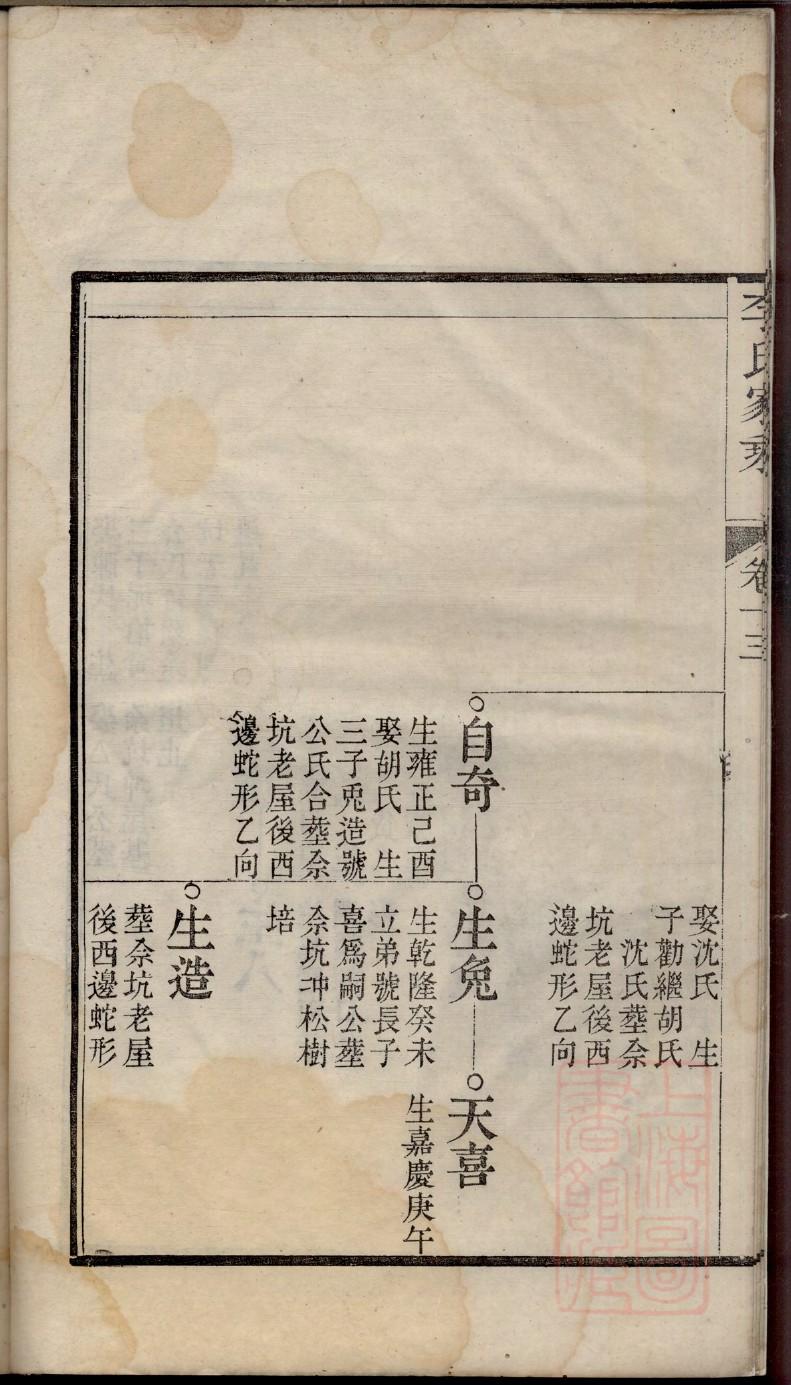 李氏家乘
卷十三
娶沈氏　生
子勸繼胡氏
沈氏塟佘
坑老屋後西
邊蛇形乙向
自奇
生雍正己酉
娶胡氏　生
三子兎造號
公氏合塟佘
坑老屋後西
邊蛇形乙向
生兔
生乾隆癸未
立弟號長子
喜爲嗣公塟
佘坑冲松樹
培
天喜
生嘉慶庚午
生造
塟佘坑老屋
後西邊蛇形
上海圖
書館藏